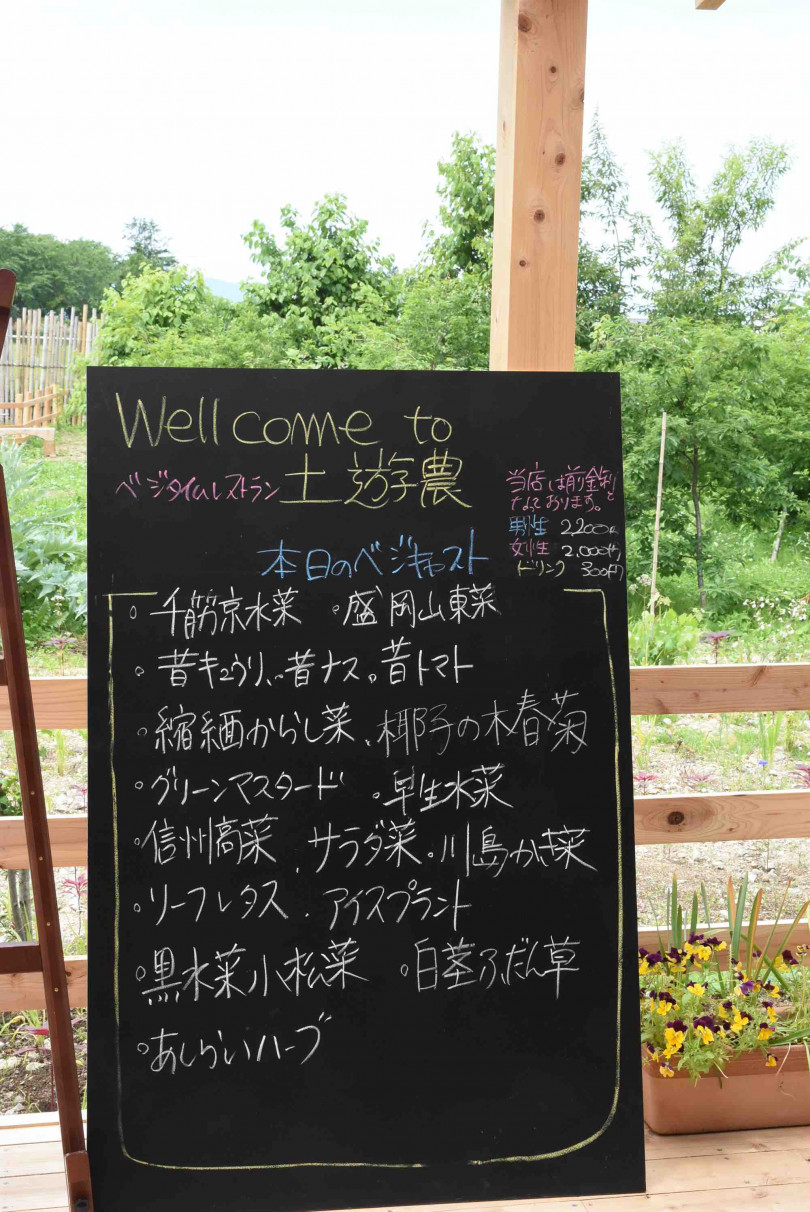 Wellcome to
ベジタイムレストラン 土遊農
当店は前金制と
なっております。
男性 2,200円
女性 2,000円
ドリンク 300円
本日のベジキャスト
◦千筋京水菜 ◦盛岡山東菜
◦昔キュウリ、◦昔ナス。昔トマト
◦縮緬からし菜、椰子の木春菊
◦グリーンマスタード ◦早生水菜
◦信州高菜、サラダ菜◦川島かき菜
◦リーフレタス、アイスプラント
◦黒水菜小松菜 ◦白茎ふだん草
◦あしらいハーブ